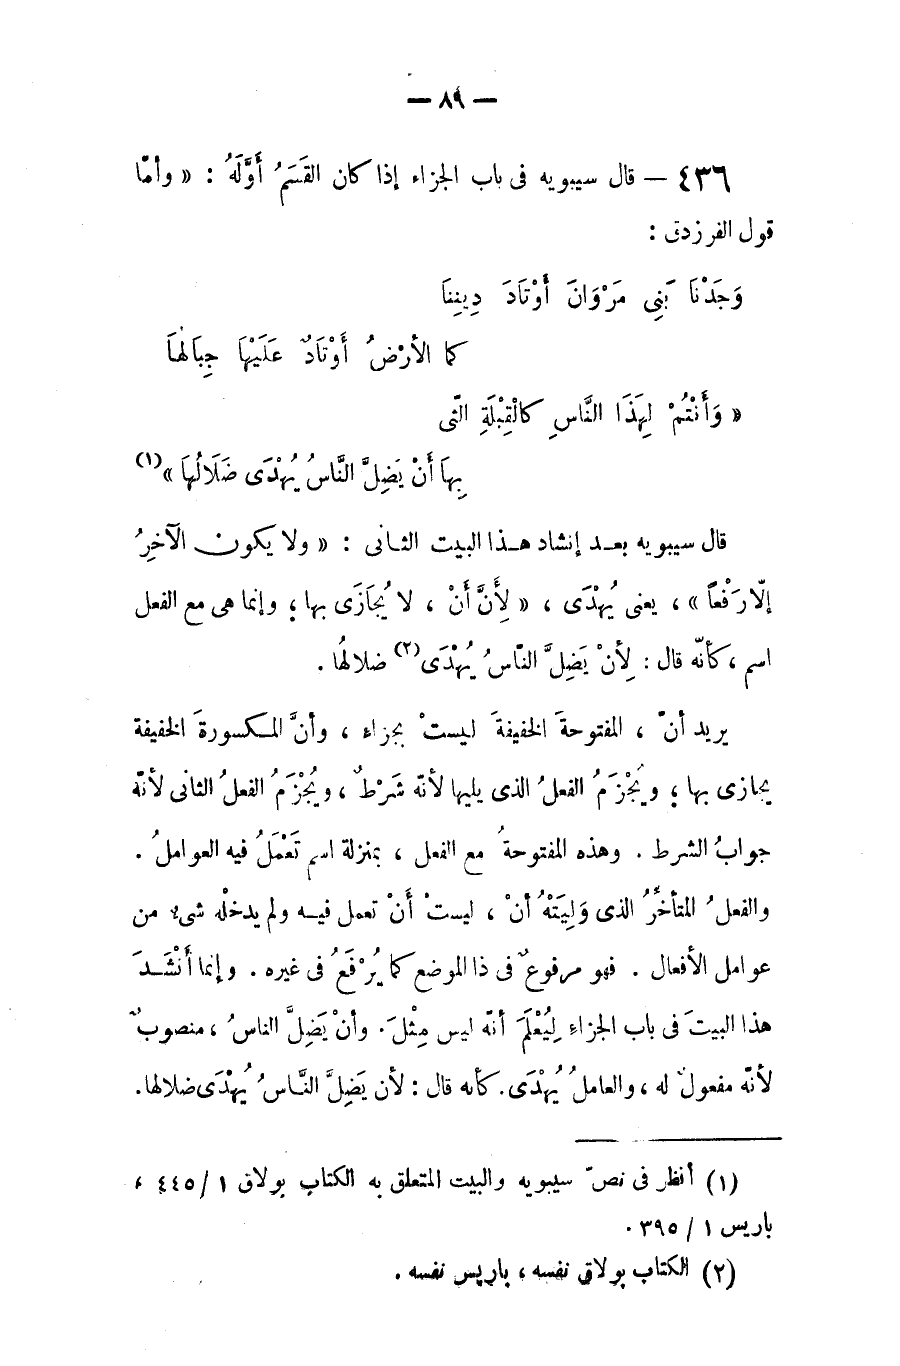 — ٨٩ —
٤٣٦ — قال سيبويه فى باب الجزاء إذا كان القَسَمُ أَوَّلَهُ : « وأمّا
قول الفرزدق :
وَجَدْنَا بَنِى مَرْوَانَ أَوْتَادَ دِينِنَا
كما الأرْضُ أَوْتَادٌ عَلَيْهَا جِبَالُهَا
« وَأَنْتُمْ لِهَذَا النَّاسِ كالْقِبْلَةِ الّتى
بِهَا أَنْ يَضِلَّ النَّاسُ يُهْدَى ضَلَالُهَا »(١)
قال سيبويه بعد إنشاد هذا البيت الثانى : « ولا يكون الآخِرُ
إلّا رَفْعاً » ، يعنى يُهْدَى ، « لِأَنَّ أَنْ ، لا يُجَازَى بها ؛ وإنما هى مع الفعل
اسم ، كأنّه قال : لِأنْ يَضِلَّ النّاسُ يُهْدَى(٢) ضلالهُا .
يريد أنّ ، المفتوحةَ الخفيفةَ ليستْ بجزاء ، وأنَّ المكسورةَ الخفيفة
يجازى بها ؛ ويُجْزَمُ الفعلُ الذى يليها لأنّه شَرْطٌ ، ويُجْزَمُ الفعلُ الثانى لأنّه
جوابُ الشرط . وهذه المفتوحةُ مع الفعل ، بمنزلة اسم تَعْمَلُ فيه العواملُ .
والفعلُ المتأخّرُ الذى وَلِيَتْهُ أنْ ، ليستْ أَنْ تعمل فيه ولم يدخلْه شىء من
عوامل الأفعال . فهو مرفوعٌ فى ذا الموضع كما يُرْفَعُ فى غيره . وإنما أَنْشَدَ
هذا البيتَ فى باب الجزاءِ لِيُعْلَمَ أنّه ليس مِثْلَ . وأنْ يَضِلَّ الناسُ ، منصوبٌ
لأنّه مفعولٌ له ، والعاملُ يُهْدَى . كأنه قال : لأن يَضِلَّ النَّاسُ يُهْدَى ضلالها .
(١) أنظر فى نصّ سيبويه والبيت المتعلق به الكتاب بولاق ١ / ٤٤٥ ،
باريس ١ / ٣٩٥ .
(٢) الكتاب بولاق نفسه ، باريس نفسه .